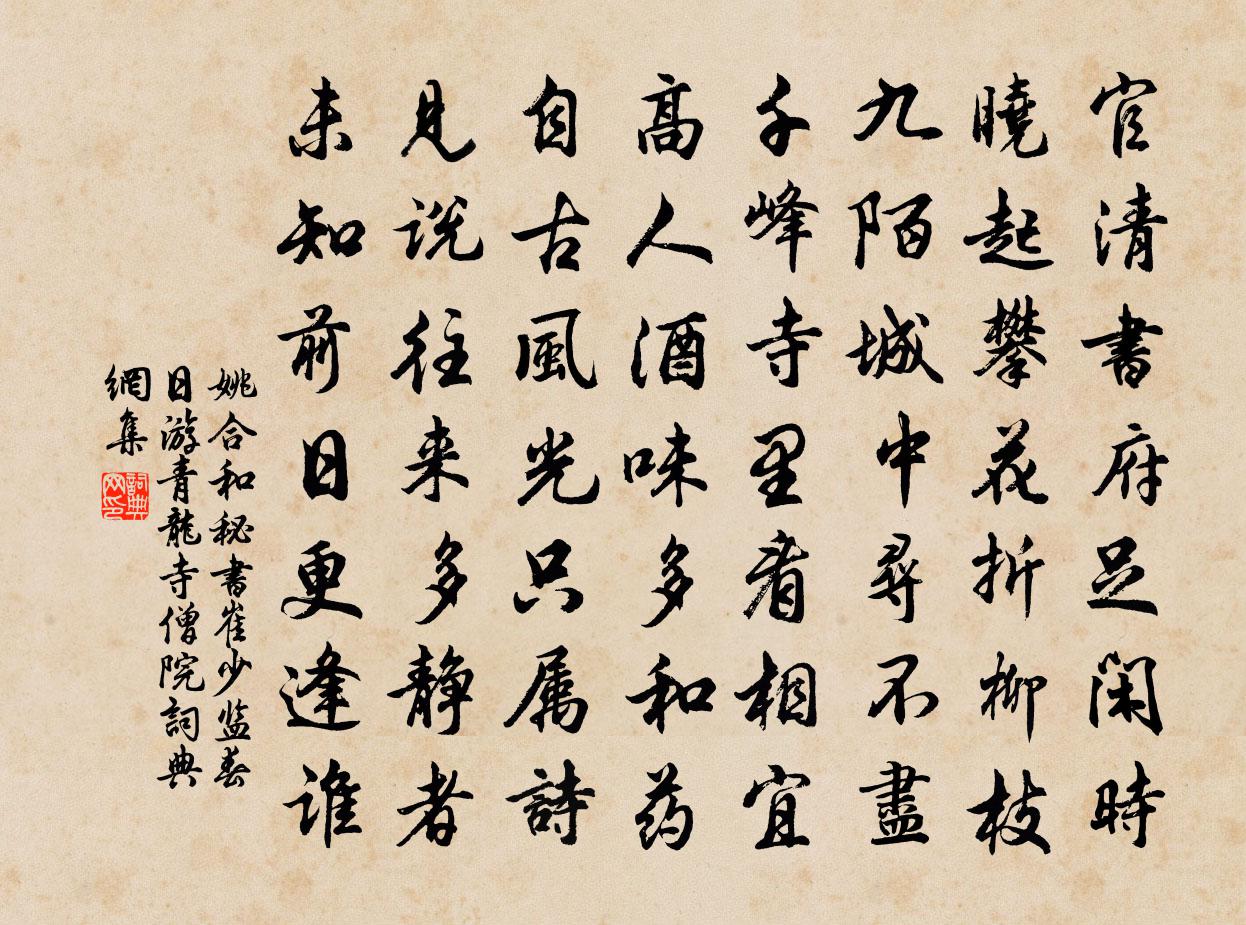 官清書府足閑時
曉起攀花折柳枝
九陌城中尋不盡
千峰寺里看相宜
高人酒味多和药
自古風光只属詩
見説往来多静者
未知前日更逢誰
姚合和秘書崔少监春
日游青龍寺僧院詞典
網集
詞典
网印